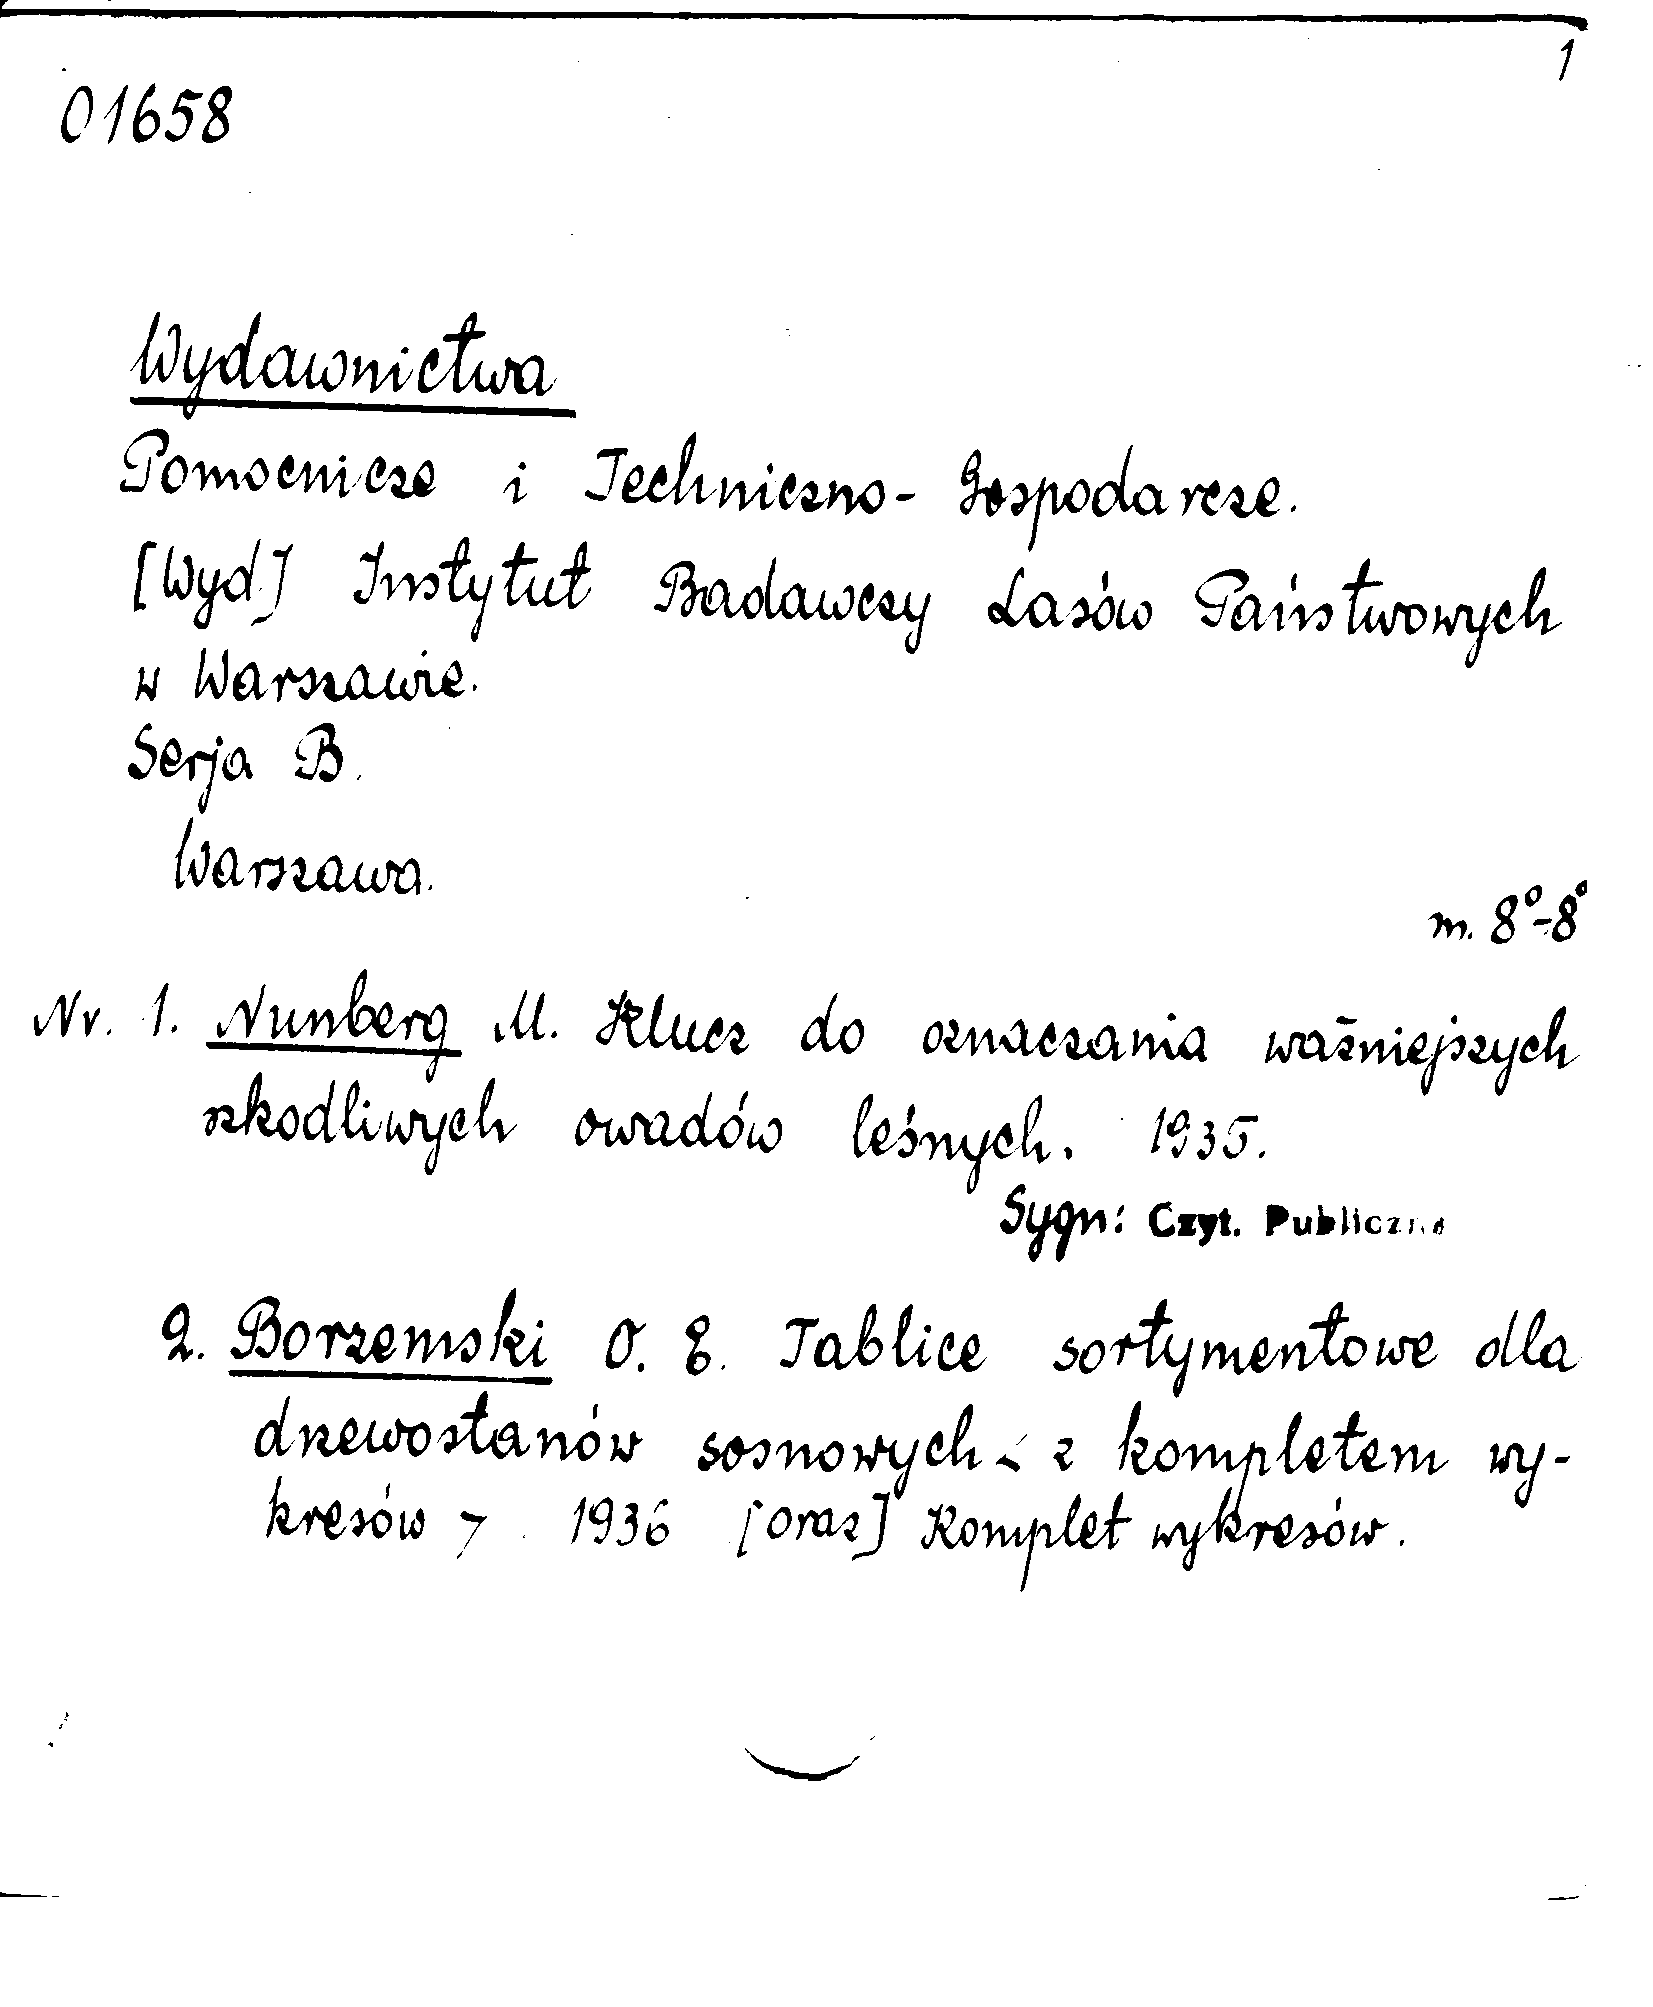 1
01658
Wydawnictwa
Pomocnicze i Techniczno-Gospodarcze.
[Wyd] Instytut Badawczy Lasów Państwowych
w Warszawie.
Serja B.
Warszawa.
m. 8°-8°
Nr. 1. Nunberg M. Klucz do oznaczania ważniejszych
szkodliwych owadów leśnych. 1935.
Sygn: Czyt. Publiczna
2. Borzemski O. E. Tablice sortymentowe dla
drzewostanów sosnowych < z kompletem wy-
kresów > 1936 [oraz] Komplet wykresów.